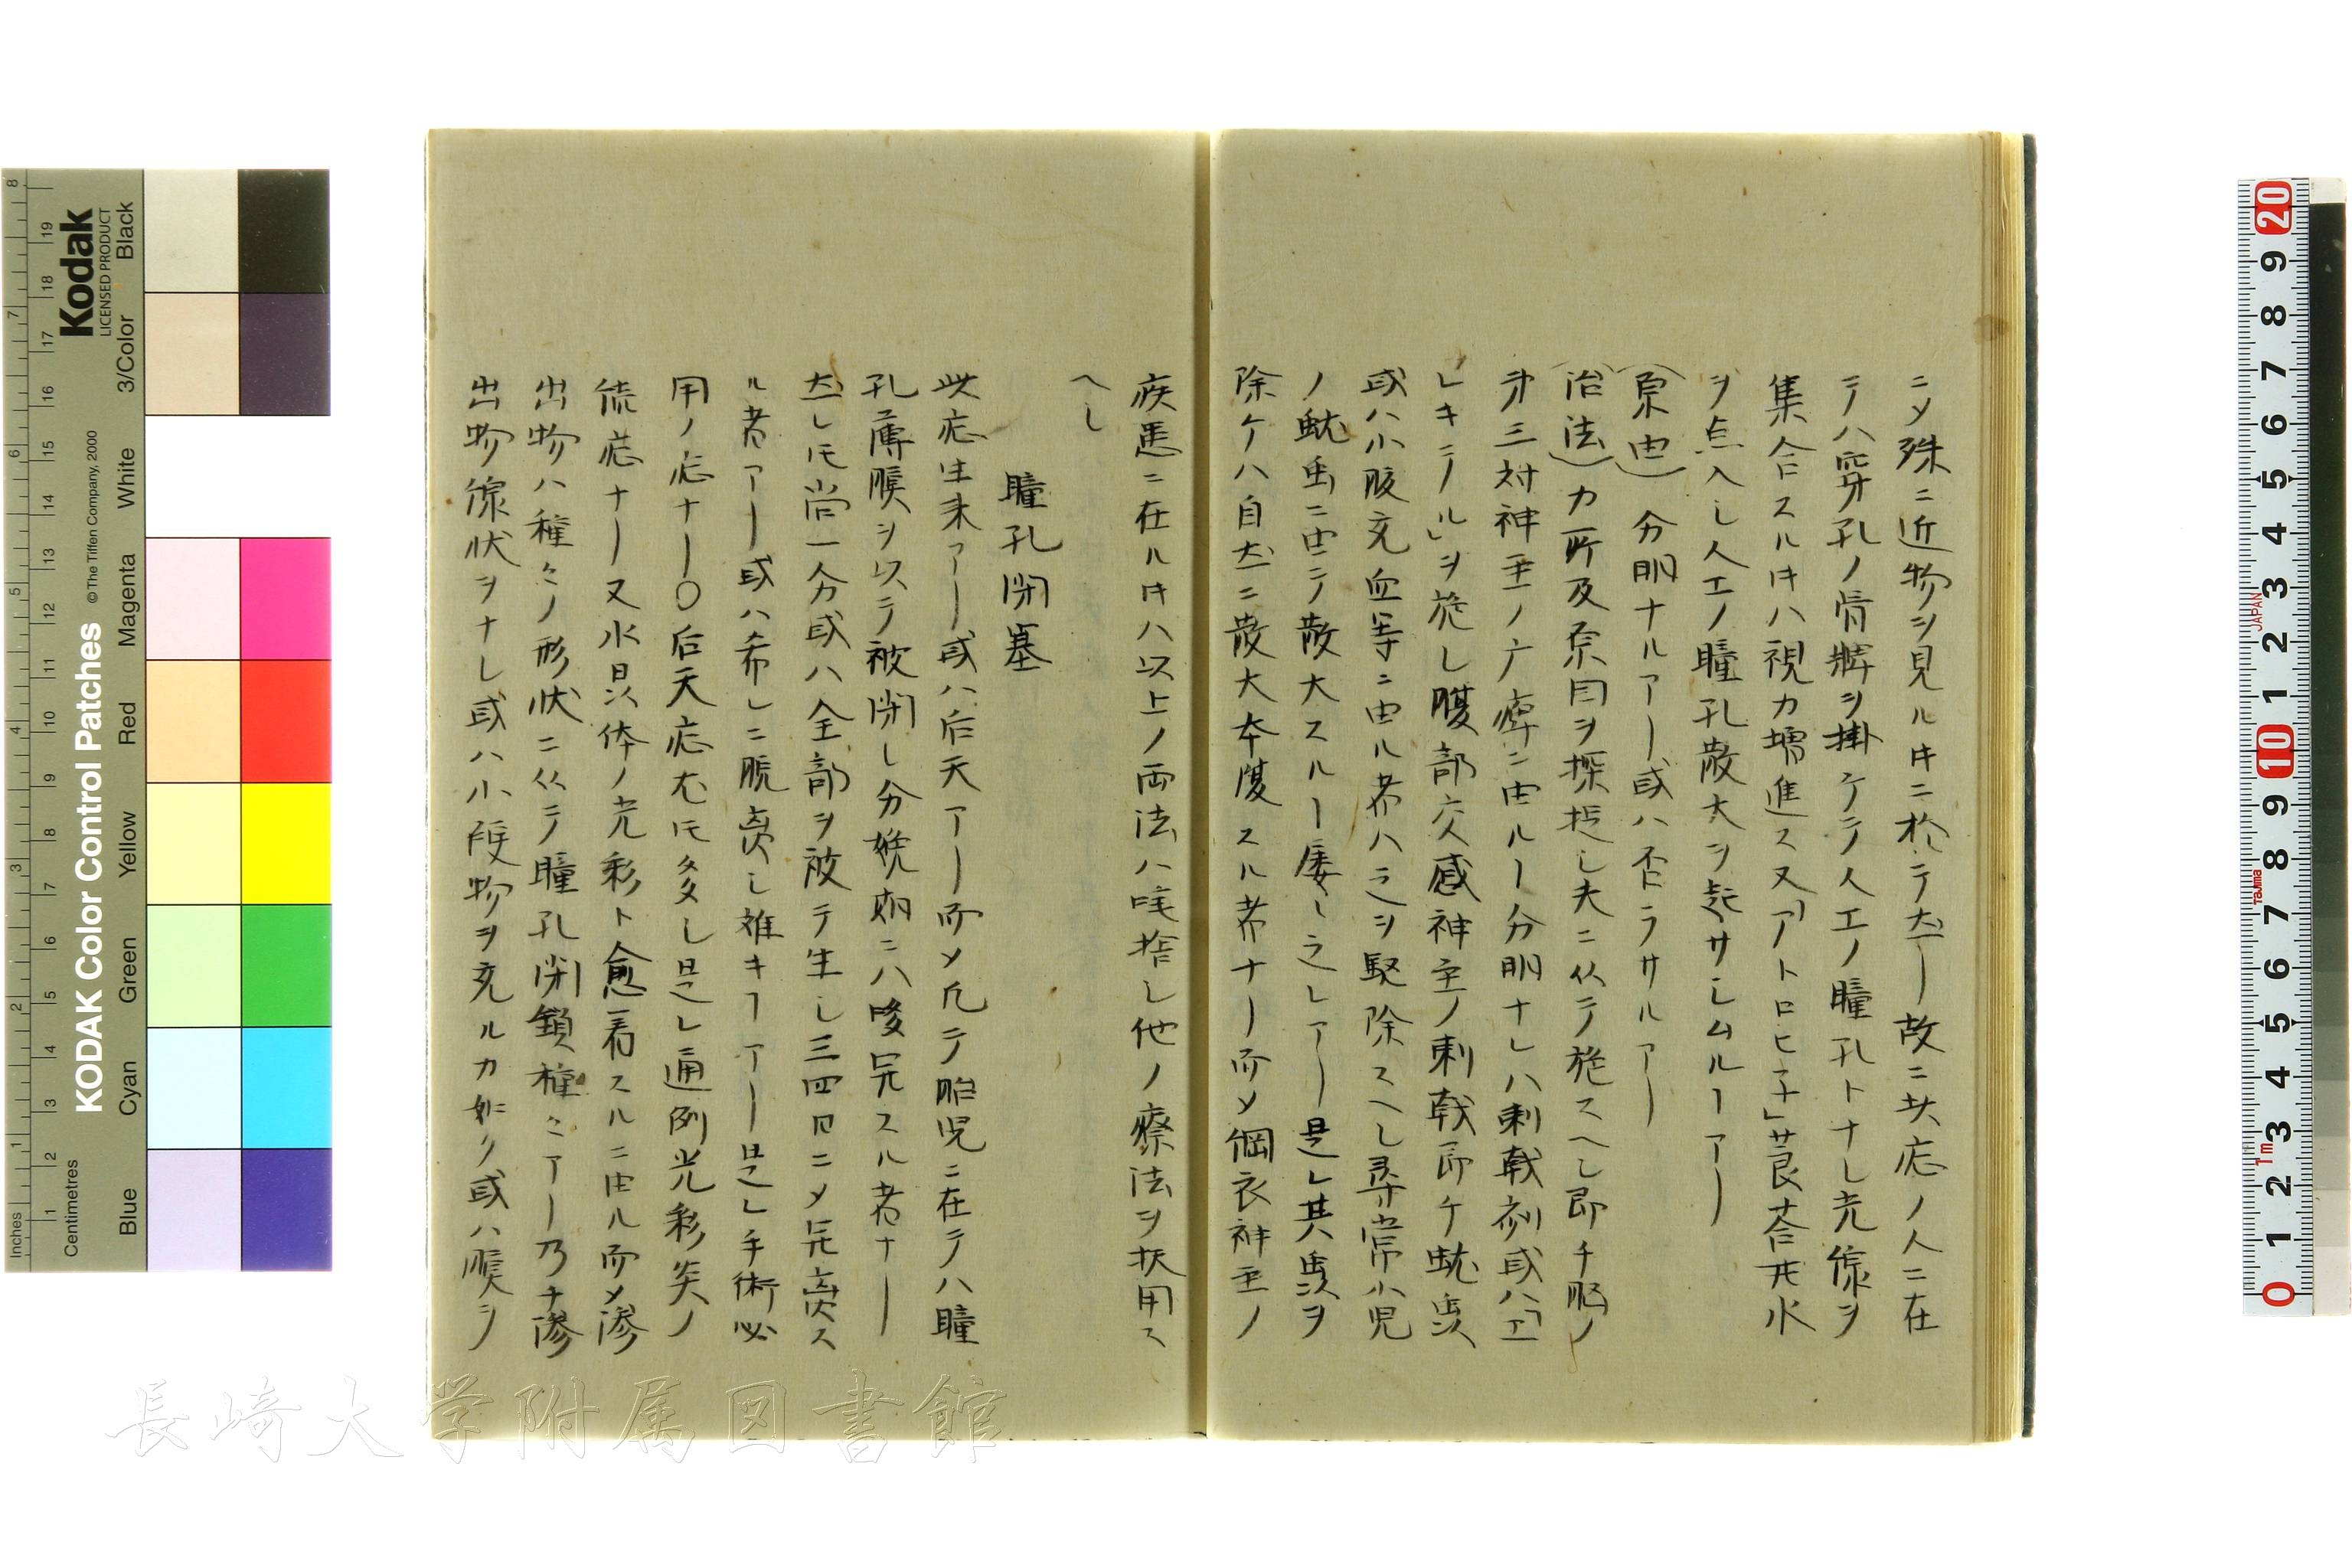 ニメ殊ニ近物ヲ見ルキニ於テ太ー故ニ此症ノ人ニ在
テハ穿孔ノ骨牌ヲ掛ケテ人工ノ瞳孔トナシ光線ヲ
集合スルキハ視力増進ス又「アトロヒ子」莨菪丼水
ヲ点入シ人工ノ瞳孔散大ヲ起サシムルーアー
(原由) 分明ナルアー或ハ否ラサルアー
(治法) 力所及原因ヲ探捉シ夫ニ从テ施スヘシ即チ脳ノ
第三対神圣ノ疒痺ニ由ルー分明ナレハ刺戟剤或ハ「エ
レキテル」ヲ施シ腹部交感神圣ノ刺戟即チ蚘虫
或ハ小腹充血等ニ由ル者ハ之ヲ駆除スヘシ尋常小児
ノ蚘虫ニ由テ散大スルー屡〻之レアー是レ其虫ヲ
除ケハ自然ニ散大本復スル者ナー而メ網衣神圣ノ
疾患ニ在ルキハ以上ノ両法ハ捨シ他ノ療法ヲ扶用ス
ヘシ
瞳孔閉塞
此症生来アー或ハ后天アー而メ凡テ胎児ニ在テハ瞳
孔薄膜ヲ以テ被閉シ分娩期ニハ唆完スル者ナー
然レ氏尚一分或ハ全部ヲ被テ生シ三四日ニメ完離ス
ル者アー或ハ希レニ脱離シ難キ丁アー是レ手術必
用ノ症ナー〇后天症尤氏多シ是レ通例光彩炎ノ
続症ナー又水晶体ノ光彩ト愈着スルニ由ル而メ滲
出物ハ種々ノ形状ニ从テ瞳孔閉鎖種々アー乃チ滲
出物線状ヲナシ或ハ小腫物ヲ充ルカ如ク或ハ膜ヲ
Kodak
LICENSED PRODUCT
KODAK Color Control Patches
© The Tiffen Company, 2000
Inches
Centimetres
Blue Cyan Green Yellow Red Magenta White 3/Color Black
長崎大学附属図書館